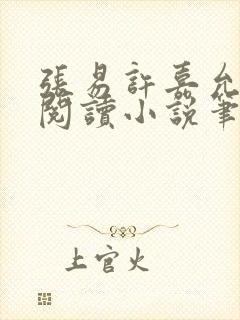 張易許嘉允
閱讀小說筆
上官火